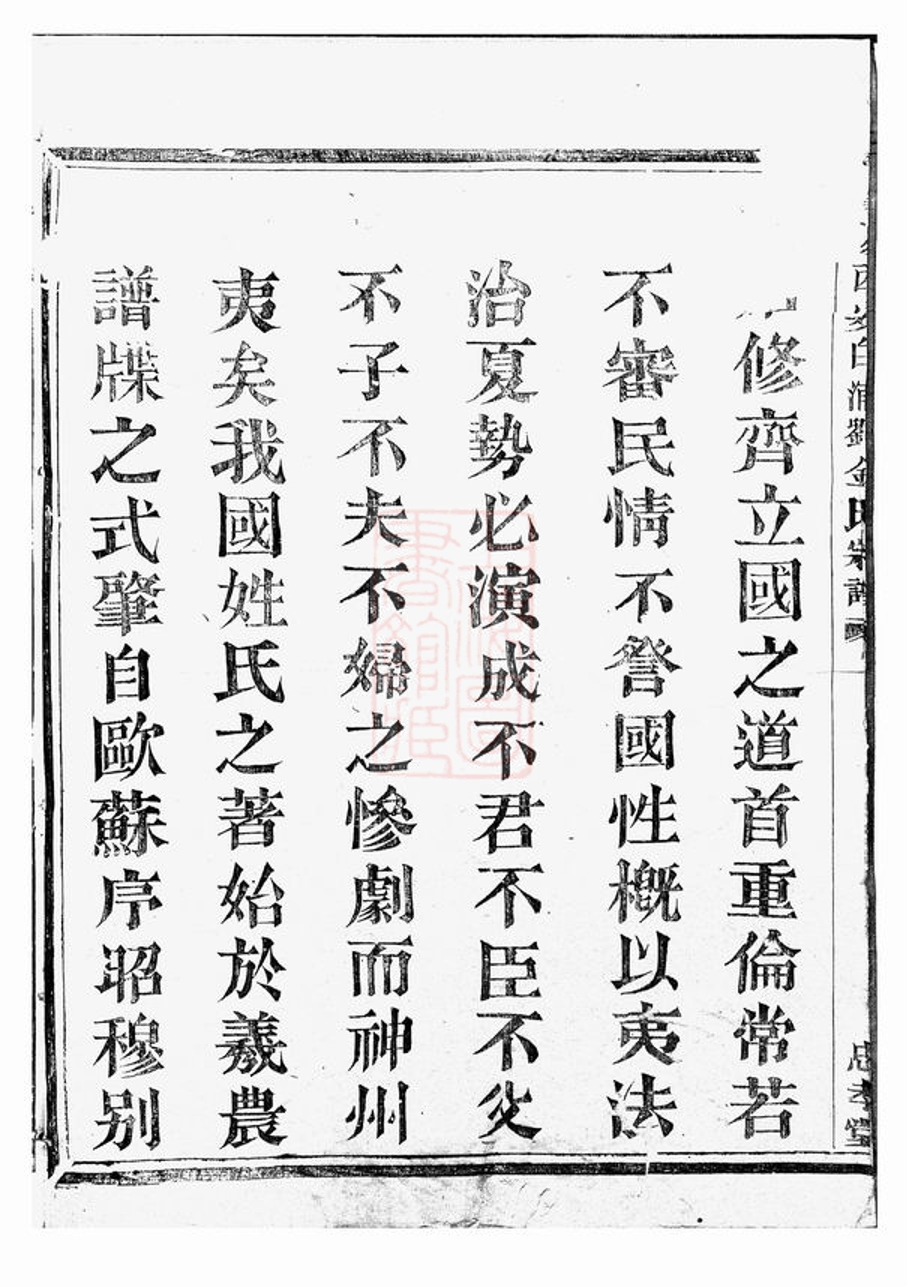 修齊立國之道首重倫常若
不審民情不詧國性槪以夷法
治夏勢必演成不君不臣不父
不子不夫不婦之慘劇而神州
夷矣我國姓氏之著始於羲農
譜牒之式肇自歐蘇序昭穆别